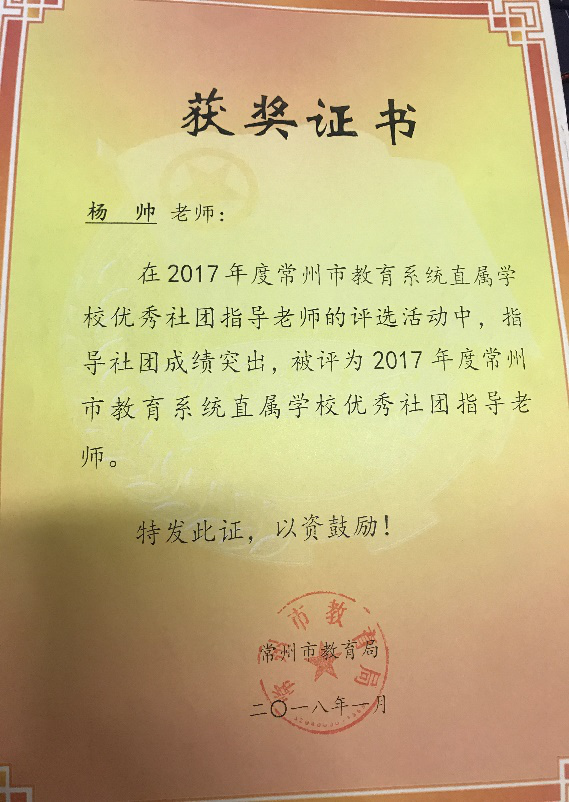 获奖证书
杨 帅 老师：
在2017年度常州市教育系统直属学
校优秀社团指导老师的评选活动中，指
导社团成绩突出，被评为2017年度常州
市教育系统直属学校优秀社团指导老
师。
特发此证，以资鼓励！
常州市教育局
常州市教育局
二〇一八年一月